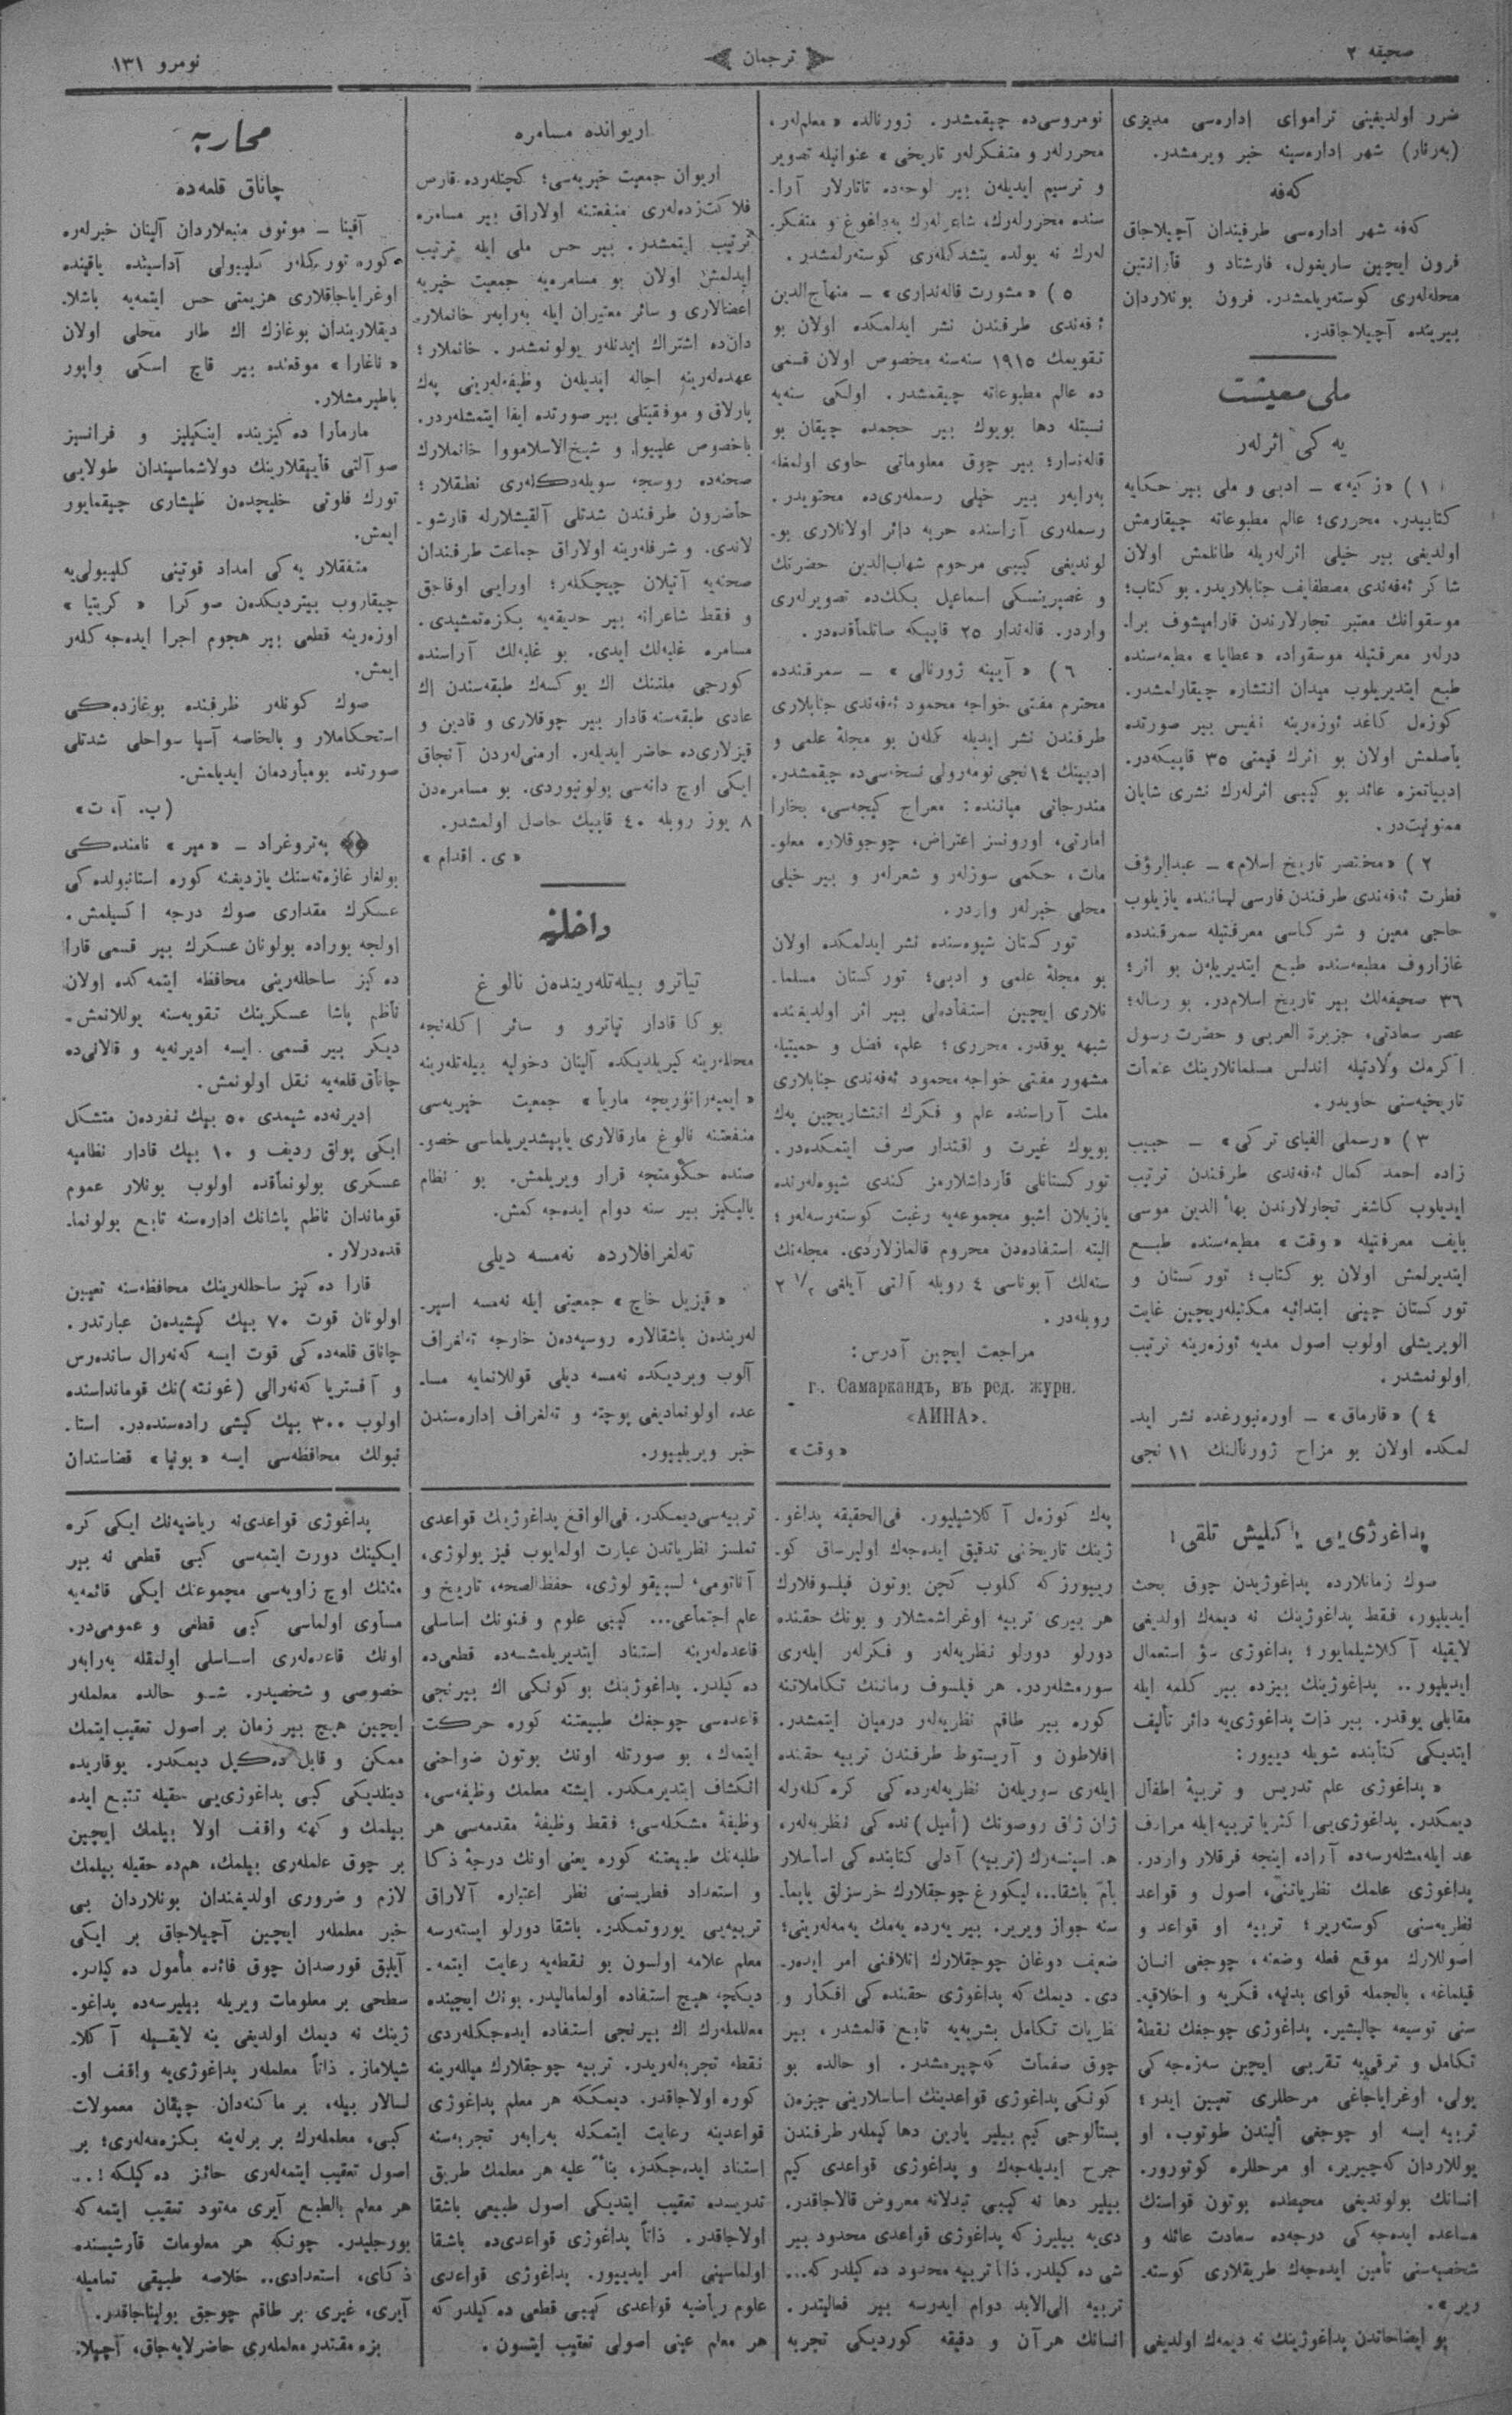 صحیفه ۲
ترجمان
نومرو ۱۳۱
ضرر اولدیغینی تراموای اداره‌سی مدیری
(به‌رنار) شهر اداره‌سینه خبر ویرمشدر.
که‌فه
که‌فه شهر اداره‌سی طرفیندان آچیلاجاق
فرون ایچین ساریغول، فارشتاد و قارانتین
محله‌لری کوسته‌ریلمشدر. فرون بونلاردان
بیرینده آچیلاجاقدر.
ملی معیشت
یه‌کی اثرلەر
۱) «زکیه» ــ ادبی و ملی بیر حکایه
کتابیدر. محرری؛ عالم مطبوعاته چیقارمش
اولدیغی بیر خیلی اثرلەریله طانلمش اولان
شاکر ئه‌فه‌ندی مصطفایف جنابلاریدر. بو کتاب؛
موسقوانك معتبر تجارلارندن قارامیشوف برا-
درلەر معرفتیله موسقوادە «عطایا» مطبعه‌سنده
طبع ایتدیریلوب میدان انتشاره چیقارلمشدر.
کوزەل کاغد ئوزەرینه نفیس بیر صورتده
باصلمش اولان بو اثرك قیمتی ۳۵ قاپیکەدر.
ادبیاتمزه عائد بو کیبی اثرلەرك نشری شایان
ممنونیت‌در.
۲) «مختصر تاریخ اسلام» ــ عبدالرؤف
فطرت ئه‌فه‌ندی طرفندن فارسی لساننده یازیلوب
حاجی معین و شرکاسی معرفتیله سمرقندده
غازاروف مطبعه‌سنده طبع ایتدیریلەن بو اثر؛
۳۶ صحیفه‌لك بیر تاریخ اسلام‌در. بو رساله؛
عصر سعادتی، جزیرة العربی و حضرت رسول
اکرمك ولادتیله اندلس مسلمانلارینك عنعنات
تاریخیه‌سنی حاویدر.
۳) «رسملی الفبای ترکی» ــ حبیب
زاده احمد کمال ئه‌فه‌ندی طرفندن ترتیب
ایدیلوب کاشغر تجارلارندن بهاء الدین موسی
بایف معرفتیله «وقت» مطبعه‌سنده طبـع
ایتدیرلمش اولان بو کتاب؛ تورکستان و
تورکستان چینی ابتدائیه مکتبلەریچین غایت
الویریشلی اولوب اصول مدیه ئوزەرینه ترتیب
اولونمشدر.
۴) «قارماق» ــ اورەنبورغده نشر اید-
لمکده اولان بو مزاح ژورنالنك ۱۱ نجی
نومروسی‌ده چیقمشدر. ژورنالده «معلم‌لەر،
محررلەر و متفکرلەر تاریخی» عنوانیله تصویر
و ترسیم ایدیلەن بیر لوحه‌ده تاتارلار آرا-
سنده محررلەرك، شاعرلەرك پەداغوغ و متفکر-
لەرك نه یولده یتشدکلەری کوستەرلمشدر.
۵) «مشورت قالەنداری» ــ منهاج‌الدین
ئه‌فه‌ندی طرفندن نشر ایدلمکده اولان بو
تقویمك ۱۹۱۵ سنه‌سنه مخصوص اولان قسمی
ده عالم مطبوعاته چیقمشدر. اولکی سنه‌یه
نسبتله دها بویوك بیر حجمده چیقان بو
قالەندار؛ بیر چوق معلوماتی حاوی اولمغله
بەرابەر بیر خیلی رسملەری‌ده محتویدر.
رسملەری آراسنده حربه دائر اولانلاری بو-
لوندیغی کیبی مرحوم شهاب‌الدین حضرتك
و غصپرینسکی اسماعیل بك‌ده تصویرلەری
واردر. قالەندار ۲۵ قاپیکه صاتلماقده‌در.
۶) «آیینه ژورنالی» ــ سمرقندده
محترم مفتی خواجه محمود ئه‌فه‌ندی جنابلاری
طرفندن نشر ایدیله گلەن بو مجلهٔ علمی و
ادبینك ۱۴نجی نومەرولی نسخه‌سی‌ده چیقمشدر.
مندرجاتی میاننده: معراج کیجه‌سی، بخارا
امارتی، اورونسز اعتراض، چوجوقلاره معلو-
مات، حکمی سوزلەر و شعرلەر و بیر خیلی
محلی خبرلەر واردر.
تورکستان شیوه‌سنده نشر ایدلمکده اولان
بو مجلهٔ علمی و ادبی؛ تورکستان مسلما-
نلاری ایچین استفاده‌لی بیر اثر اولدیغنده
شبهه یوقدر. محرری؛ علم، فضل و حمیتیله
مشهور مفتی خواجه محمود ئه‌فه‌ندی جنابلاری
ملت آراسنده علم و فکرك انتشاریچین پەك
بویوك غیرت و اقتدار صرف ایتمکده‌در.
تورکستانلی قارداشلارمز کندی شیوه‌لەرنده
یازیلان اشبو مجموعه‌یه رغبت کوستەرسەلەر؛
البته استفاده‌دن محروم قالمازلاردی. مجله‌نك
سنه‌لك آبوناسی ۴ روبله آلتی آیلغی ۲ ۱/۲
روبله‌در.
مراجعت ایچین آدرس:
г. Самаркандъ, въ ред. журн.
«АИНА».
«وقت»
اریوانده مسامره
اریوان جمعیت خیریه‌سی؛ کچنلەرده قارص
فلاکت‌زده‌لەری منفعتنه اولاراق بیر مسامره
ترتیب ایتمشدر. بیر حس ملی ایله ترتیب
ایدلمش اولان بو مسامره‌یه جمعیت خیریه
اعضالاری و سائر معتبران ایله بەرابەر خانملار-
دان‌ده اشتراك ایدنلەر بولونمشدر. خانملار؛
عهده‌لەرینه احاله ایدیلەن وظیفه‌لەرینی پەك
پارلاق و موفقیتلی بیر صورتده ایفا ایتمشلەردر.
باخصوص علییوا و شیخ‌الاسلامووا خانملارك
صحنه‌ده روسجه سویلەدکلەری نطقلار؛
حاضرون طرفندن شدتلی آلقیشلارله قارشو-
لاندی. و شرفلەرینه اولاراق جماعت طرفندان
صحنه‌یه آتیلان چیچکلەر؛ اورایی اوفاجق
و فقط شاعرانه بیر حدیقه‌یه بکزه‌تمشیدی.
مسامره غلبه‌لك ایدی. بو غلبه‌لك آراسنده
کورجی ملتنك اك یوکسەك طبقه‌سندن اك
عادی طبقه‌سنه قادار بیر چوقلاری و قادین و
قیزلاری‌ده حاضر ایدیلەر. ارمنی‌لەردن آنجاق
ایکی اوچ دانه‌سی بولونیوردی. بو مسامره‌دن
۸ یوز روبله ۴۰ قاپیك حاصل اولمشدر.
«ی. اقدام»
داخلیه
تیاترو بیلەتلەریندەن نالوغ
بوکا قادار تیاترو و سائر اکلەنجه
محللەرینه کیریلدیکده آلینان دخولیه بیلەتلەرینه
«ایمپەراتوریچه ماریا» جمعیت خیریه‌سی
منفعتنه نالوغ مارقالاری یاپیشدیریلماسی خصو-
صنده حکومتجه قرار ویریلمش. بو نظام
یالیکیز بیر سنه دوام ایده‌جه‌کمش.
تەلغرافلارده نەمسه دیلی
«قیزیل خاچ» جمعیتی ایله نەمسه اسیر-
لەریندەن باشقالاره روسیه‌دەن خارجه تەلغراف
آلوب ویردیکده نەمسه دیلی قوللانمایه مسا-
عده اولونمادیغی پوچته و تەلغراف اداره‌سندن
خبر ویریلییور.
محاربه
چاناق قلعه‌ده
آفینا ــ موثوق منبعلاردان آلینان خبرلەره
کوره تورکلەر گلیبولی آداسینده یاقینده
اوغرایاجاقلاری هزیمتی حس ایتمه‌یه باشلا-
دیقلاریندان بوغازك اك طار محلی اولان
«ناغارا» موقعنده بیر قاچ اسکی واپور
باطیرمشلار.
مارمارا ده‌کیزینده اینکیلیز و فرانسیز
صو آلتی قاییقلارینك دولاشماسیندان طولایی
تورك فلوتی خلیجدەن طیشاری چیقمایور
ایمش.
متفقلار یه‌کی امداد قوتینی کلیبولی‌یه
چیقاروب بیتردیکدەن صوکرا «کریتیا»
اوزەرینه قطعی بیر هجوم اجرا ایده‌جه‌کلەر
ایمش.
صوك کونلەر ظرفنده بوغازده‌کی
استحکاملار و بالخاصه آسیا سواحلی شدتلی
صورتده بومباردمان ایدیلمش.
(پ. آ. ت)
پەتروغراد ــ «میر» نامنده‌کی
بولغار غازەته‌سنك یازدیغنه کوره استانبولده‌کی
عسکرك مقداری صوك درجه اکسیلمش.
اولجه بوراده بولونان عسکرك بیر قسمی قارا
ده‌کیز ساحللەرینی محافظه ایتمه‌کده اولان
ناظم پاشا عسکرینك تقویه‌سنه یوللانمش-
دیکر بیر قسمی ایسه ادیرنه‌یه و قالانی‌ده
چاناق قلعه‌یه نقل اولونمش.
ادیرنه‌ده شیمدی ۵۰ بیك نفردەن متشکل
ایکی پولق ردیف و ۱۰ بیك قادار نظامیه
عسکری بولونماقده اولوب بونلار عموم
قوماندان ناظم پاشانك اداره‌سنه تابع بولونما-
قده‌درلار.
قارا ده‌کیز ساحللەرینك محافظه‌سنه تعیین
اولونان قوت ۷۰ بیك کیشیدەن عبارتدر.
چاناق قلعه‌ده‌کی قوت ایسه که‌نەرال ساندەرس
و آفستریا که‌نەرالی (غونته)نك قومانداسنده
اولوب ۳۰۰ بیك کیشی راده‌سنده‌در. استا-
نبولك محافظه‌سی ایسه «بونپا» قضاسندان
پداغوژی‌یی یاکلیش تلقی!
صوك زمانلارده پداغوژیدن چوق بحث
ایدیلیور، فقط پداغوژینك نه دیمەك اولدیغی
لایقیله آکلاشیلمایور؛ پداغوژی سؤ استعمال
ایدیلیور.. پداغوژینك بیزده بیر کلمه ایله
مقابلی یوقدر. بیر ذات پداغوژی‌یه دائر تألیف
ایتدیکی کتابنده شویله دییور:
«پداغوژی علم تدریس و تربیهٔ اطفال
دیمکدر. پداغوژی‌یی اکثریا تربیه ایله مرادف
عد ایله‌مشلەرسه‌ده آراده اینجه فرقلار واردر.
پداغوژی علمك نظریاتنی، اصول و قواعد
نظریه‌سنی کوستەریر؛ تربیه او قواعد و
اصوللارك موقع فعله وضعنه، چوجغی انسان
قیلماغه، بالجمله قوای بدنیه، فکریه و اخلاقیه-
سنی توسیعه چالیشیر. پداغوژی چوجغك نقطهٔ
تکامل و ترقی‌یه تقربی ایچین سەزه‌جه‌کی
یولی، اوغرایاجاغی مرحللری تعیین ایدر؛
تربیه ایسه او چوجغی ألیندن طوتوب، او
یوللاردان که‌چیریر، او مرحللره کوتورور.
انسانك بولوندیغی محیطده بوتون قواسنك
مساعده ایده‌جه‌کی درجه‌ده سعادت عائله و
شخصیه‌سنی تأمین ایده‌جەك طریقلاری کوستە-
ریر».
بو ایضاحاتدن پداغوژینك نه دیمەك اولدیغی
پەك کوزەل آکلاشیلیور. فی‌الحقیقه پداغو-
ژینك تاریخنی تدقیق ایده‌جەك اولیرساق کو-
ریبورز که کلوب کچن بوتون فیلسوفلارك
هر بیری تربیه اوغراشمشلار و بونك حقنده
دورلو دورلو نظریه‌لەر و فکرلەر ایلەری
سورمشلەردر. هر فیلسوف زماننك تکاملاتنه
کوره بیر طاقم نظریه‌لەر درمیان ایتمشدر.
افلاطون و آریستوط طرفندن تربیه حقنده
ایلەری سوریلەن نظریه‌لەرده‌کی کره کله‌رله
ژان ژاق روصونك (أمیل)نده‌کی نظریه‌لەر،
ه. اسپنسەرك (تربیه) آدلی کتابنده‌کی اساسلار
بام باشقا..، لیکورغ چوجقلارك خرسزلق یاپما-
سنه جواز ویریر. بیر یەرده یەمك یەمەلەرینی؛
ضعیف دوغان چوجقلارك اتلافنی امر ایدەر-
دی. دیمك که پداغوژی حقنده‌کی افکار و
نظریات تکامل بشریه‌یه تابع قالمشدر، بیر
چوق صفحات که‌چیرمشدر. او حالده بو
کونکی پداغوژی قواعدینك اساسلارینی چیزەن
پستالوجی کیم بیلیر یارین دها کیملەر طرفندن
جرح ایدیله‌جەك و پداغوژی قواعدی کیم
بیلیر دها نه کیبی تبدلاته معروض قالاجاقدر.
دی‌یه بیلیرز که پداغوژی قواعدی محدود بیر
شی ده‌کیلدر. ذاتا تربیه محدود ده‌کیلدر که...
تربیه الی‌الابد دوام ایدرسه بیر فعالیتدر.
انسانك هر آن و دقیقه کوردیکی تجربه
تربیه‌سی‌دیمکدر. فی‌الواقع پداغوژینك قواعدی
تملسز نظریاتدن عبارت اولمایوب فیزیولوژی،
آناتومی، پسیقولوژی، حفظ‌الصحه، تاریخ و
علم اجتماعی... کیبی علوم و فنونك اساسلی
قاعده‌لەرینه استناد ایتدیریلمشسه‌ده قطعی‌ده
ده‌کیلدر. پداغوژینك بو کونکی اك بیرنجی
قاعده‌سی چوجغك طبیعتنه کوره حرکت
ایتمەك، بو صورتله اونك بوتون ضواحنی
انکشاف ایتدیرمکدر. ایشته معلمك وظیفه‌سی،
وظیفهٔ مشکله‌سی؛ فقط وظیفهٔ مقدمه‌سی هر
طلبه‌نك طبیعتنه کوره یعنی اونك درجهٔ ذکا
و استعداد فطریسنی نظر اعتباره آلاراق
تربیه‌یی یوروتمکدر. باشقا دورلو ایستەرسه
معلم علامه اولسون بو نقطه‌یه رعایت ایتمه-
دیکجه هیچ استفاده اولمامالیدر. بونك ایچینده
معلملەرك اك بیرنجی استفاده ایده‌جکلەردی
نقطه تجربه‌لەریدر. تربیه چوجقلارك میللەرینه
کوره اولاجاقدر. دیمکكه هر معلم پداغوژی
قواعدینه رعایت ایتمکله بەرابەر تجربه‌سنه
استناد ایده‌جکدر، بناءً علیه هر معلمك طریق
تدریسده تعقیب ایتدیکی اصول طبیعی باشقا
اولاجاقدر. ذاتاً پداغوژی قواعدی‌ده باشقا
اولماسینی امر ایدییور. پداغوژی قواعدی
علوم ریاضیه قواعدی کیبی قطعی ده‌کیلدر که
هر معلم عینی اصولی تعقیب ایتسون.
پداغوژی قواعدی‌نه ریاضیه‌نك ایکی کره
ایکینك دورت ایتمه‌سی کبی قطعی نه بیر
مثلثك اوچ زاویه‌سی مجموعنك ایکی قائمه‌یه
مساوی اولماسی کبی قطعی و عمومی‌در.
اونك قاعده‌لەری اساسلی اولمقله بەرابەر
خصوصی و شخصیدر. شو حالده معلملەر
ایچین هیچ بیر زمان بر اصول تعقیب ایتمك
ممکن و قابل ده‌کیل دیمکدر. یوقاریده
دینلدیکی کبی پداغوژی‌یی حقیله تتبع ایده
بیلمك و کهنه واقف اولا بیلمك ایچین
بر چوق علملەری بیلمك، هم‌ده حقیله بیلمك
لازم و ضروری اولدیغندان بونلاردان بی
خبر معلملەر ایچین آچیلاجاق بر ایکی
آیلق قورصدان چوق فائده مأمول ده‌کیلدر.
سطحی بر معلومات ویریله بیلیرسه‌ده پداغو-
ژینك نه دیمك اولدیغی ینه لایقیله آکلا-
شیلاماز. ذاتاً معلملەر پداغوژی‌یه واقف او-
لسالار بیله، بر ماکنه‌دان چیقان معمولات
کبی، معلملەرك بر برلەینه بکزه‌مەلەری؛ بر
اصول تعقیب ایتمه‌لەری جائز ده‌کیلکه!..
هر معلم بالطبع آیری مەتود تعقیب ایتمه‌که
بورجلیدر. چونکه هر معلومات قارشیسنده
ذکای، استعدادی.. خلاصه طبیقی تمامیله
آیری، غیری بر طاقم چوجق بولیناجاقدر.
بزه مقتدر معلملەری حاضرلایه‌جاق، آچیلا-